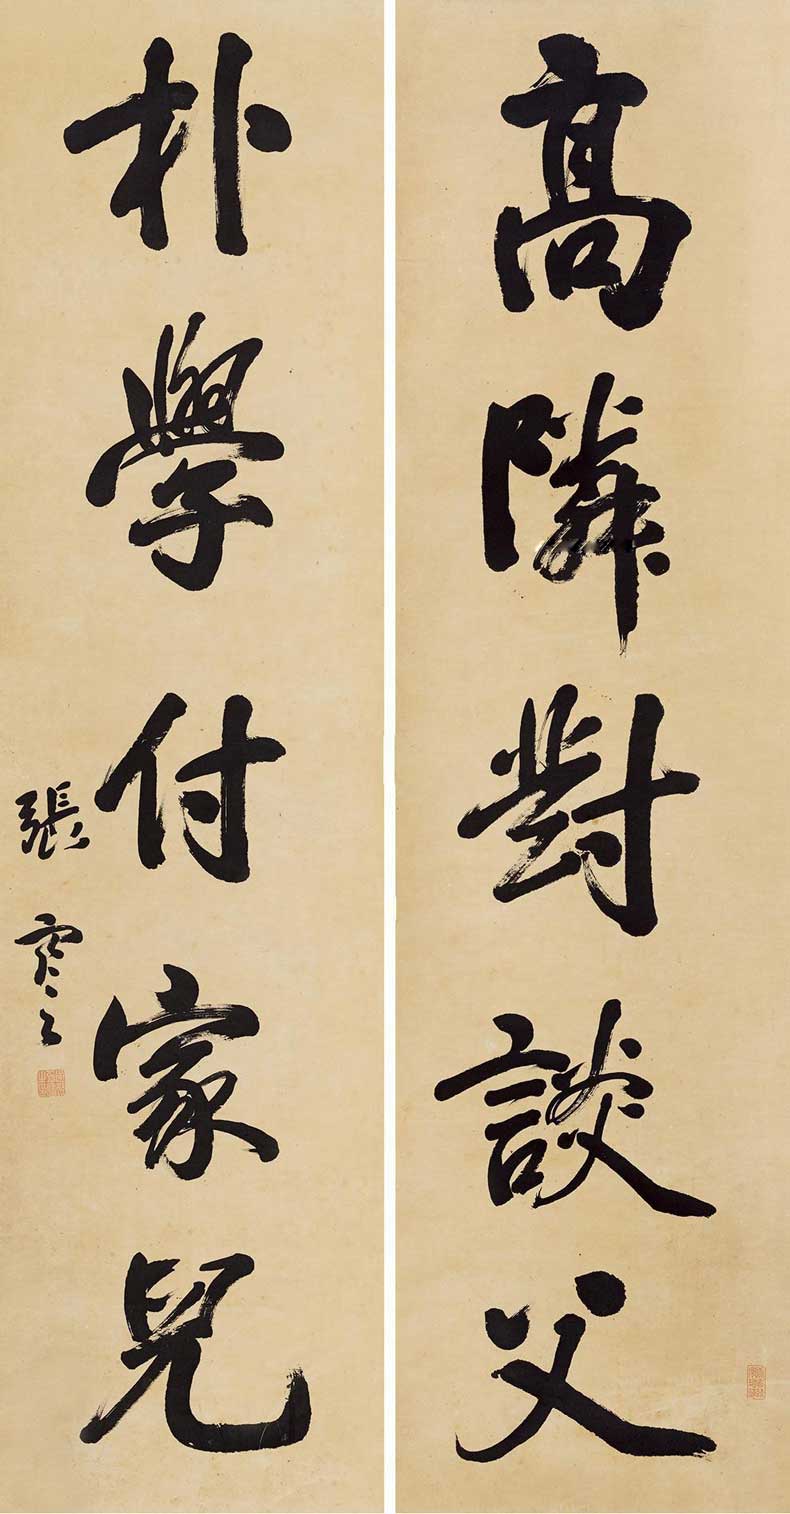 高隣對談父
朴學付家兒
張謇